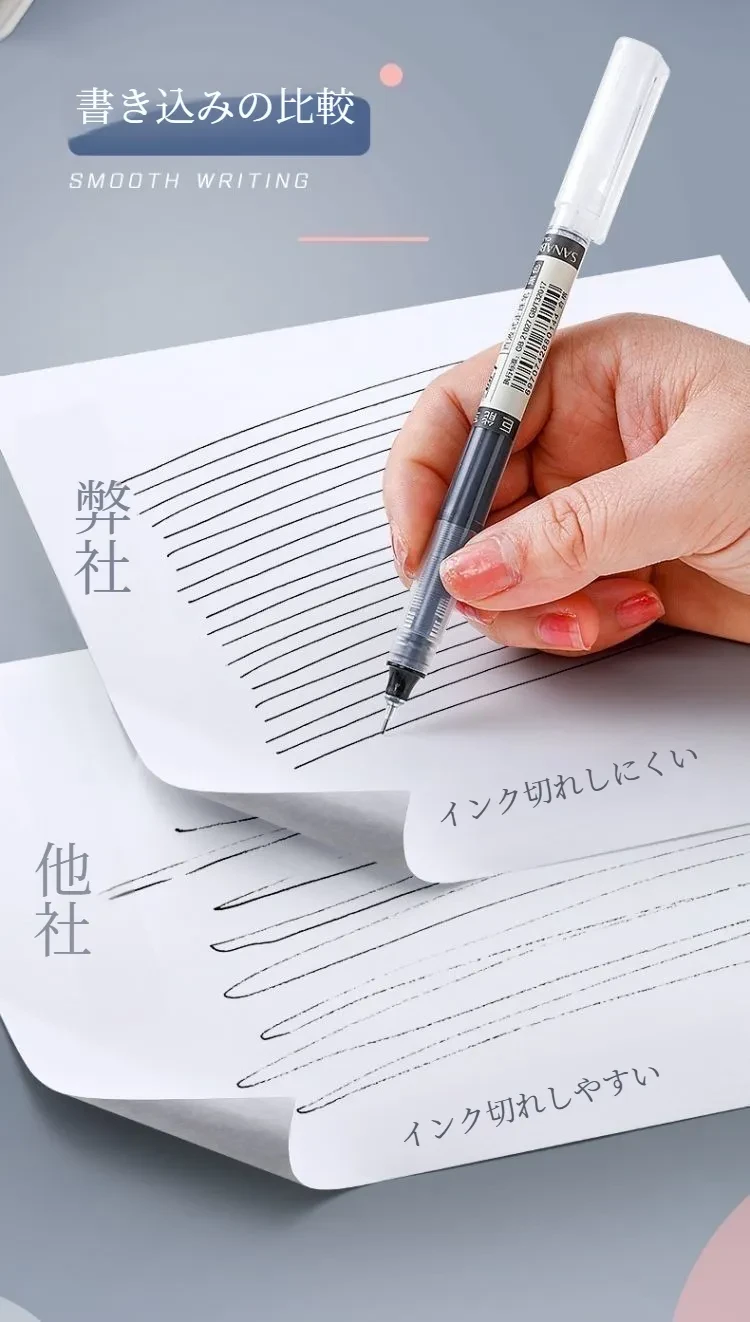 書き込みの比較
SMOOTH WRITING
弊社
インク切れしにくい
他社
インク切れしやすい